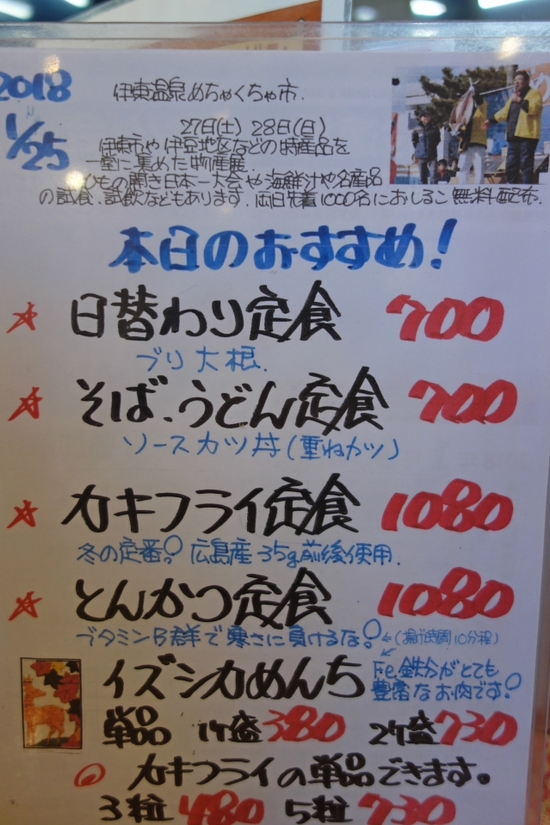 2018
1/25
伊東温泉めちゃくちゃ市.
27日(土) 28日(日)
伊東市や伊豆地区などの特産品を
一堂に集めた物産展
ひもの開き日本一大会や海鮮汁や名産品
の試食、試飲などもあります。両日先着1000名におしるこ無料配布.
本日のおすすめ!
☆ 日替わり定食 700
ブリ大根.
☆ そば、うどん定食 700
ソースカツ丼(重ねカツ)
☆ カキフライ定食 1080
冬の定番! 広島産35g前後使用.
☆ とんかつ定食 1080
ブタミンB群で寒さに負けるな! ←(揚げ時間10分程)
イズシカめんち Fe鉄分がとても
豊富なお肉です!
単品 1ケ盛380 2ケ盛730
カキフライの単品できます。
3粒480 5粒730